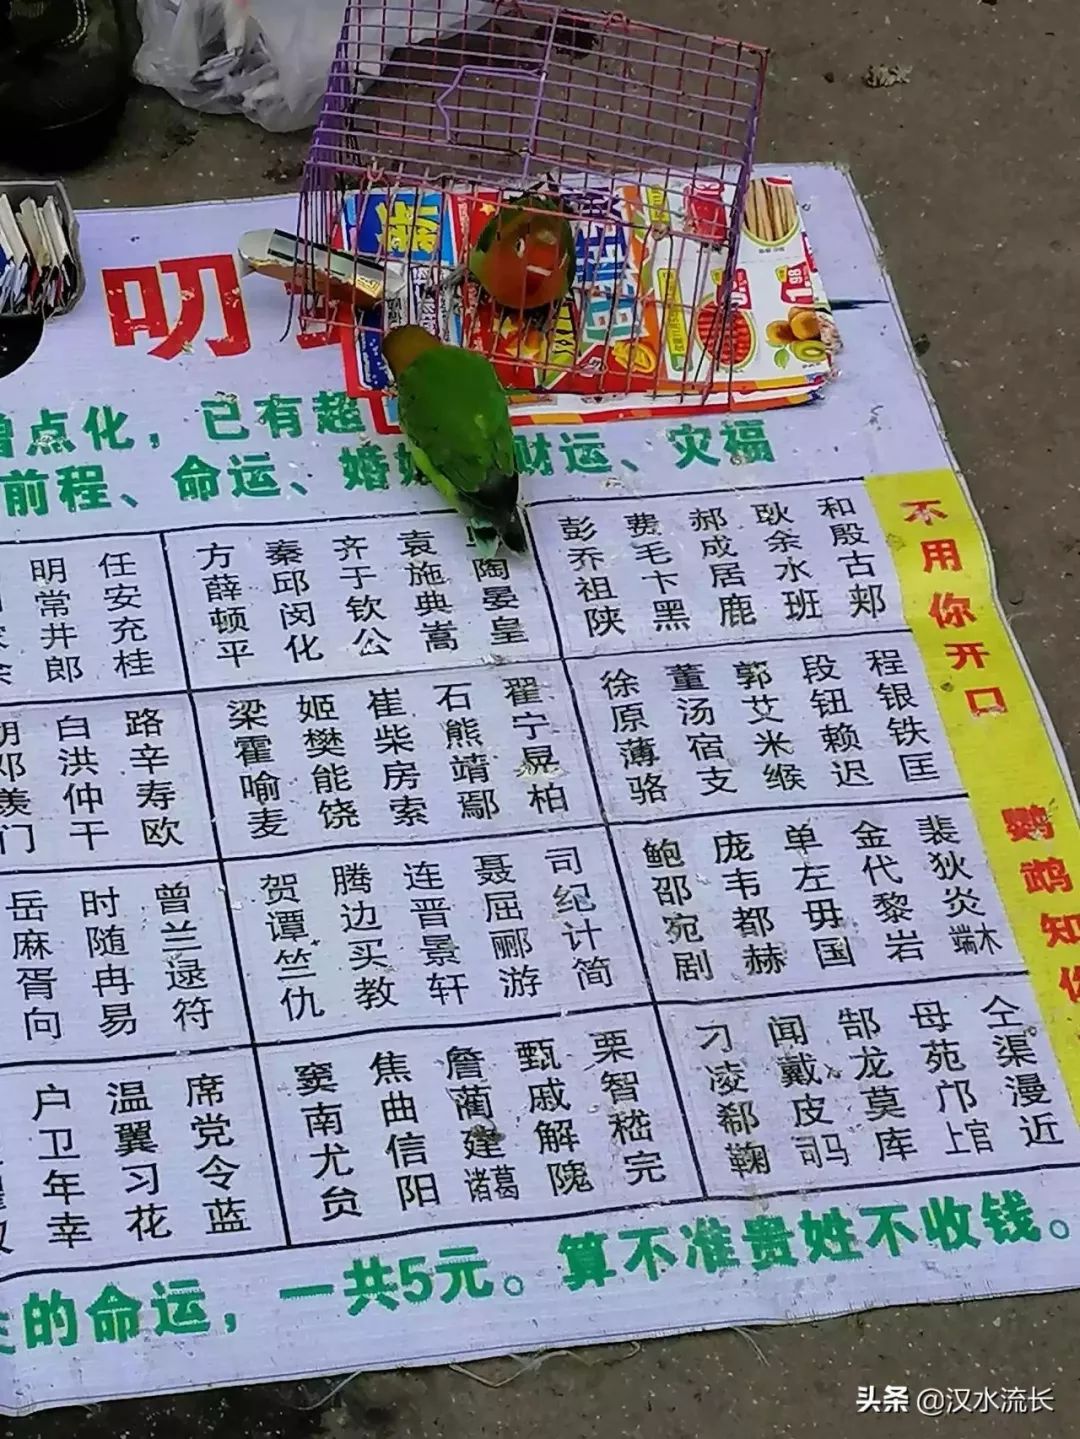 叨
曾点化，已有超
前程、命运、婚 财运、灾福
不用你开口
鹦鹉知你
明 任
常 安
井 充
郎 桂
方 秦 齐 袁
薛 邱 于 施 陶
顿 闵 钦 典 晏
平 化 公 嵩 皇
彭 费 郝 耿 和
乔 毛 成 余 殷
祖 卞 居 水 古
陕 黑 鹿 班 郏
胡 白 路
邓 洪 辛
羡 仲 寿
门 干 欧
梁 姬 崔 石 翟
霍 樊 柴 熊 宁
喻 能 房 靖 晃
麦 饶 索 鄢 柏
徐 董 郭 段 程
原 汤 艾 钮 银
薄 宿 米 赖 铁
骆 支 缑 迟 匡
岳 时 曾
麻 随 兰
胥 冉 逯
向 易 符
贺 腾 连 聂 司
谭 边 晋 屈 纪
竺 买 景 郦 计
仇 教 轩 游 简
鲍 庞 单 金 裴
邵 韦 左 代 狄
宛 都 毋 黎 炎
剧 赫 国 岩 端木
户 温 席
卫 翼 党
年 习 令
幸 花 蓝
窦 焦 詹 甄 栗
南 曲 蔺 戚 智
尤 信 建 解 嵇
贠 阳 诸葛 隗 完
刁 闻 郜 母 仝
凌 戴 龙 苑 渠
郗 皮 莫 邝 漫
鞠 司马 库 上官 近
的命运，一共5元。算不准贵姓不收钱。
1.98
头条 @汉水流长